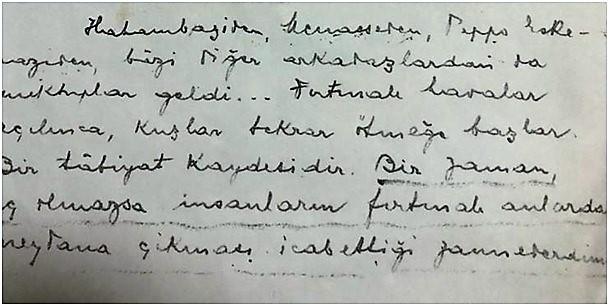 Hahambaşıdan, Menasseden, Peppo Eske-
naziden, bâzi diğer arkadaşlardan da
mektuplar geldi... Fırtınalı havalar
açılınca, kuşlar tekrar ötmeğe başlar.
Bir tâbiyat kaydesidir. Bir zaman,
ç olmazsa insanların fırtınalı anlarda
meydana çıkması icabettiği zannederdim